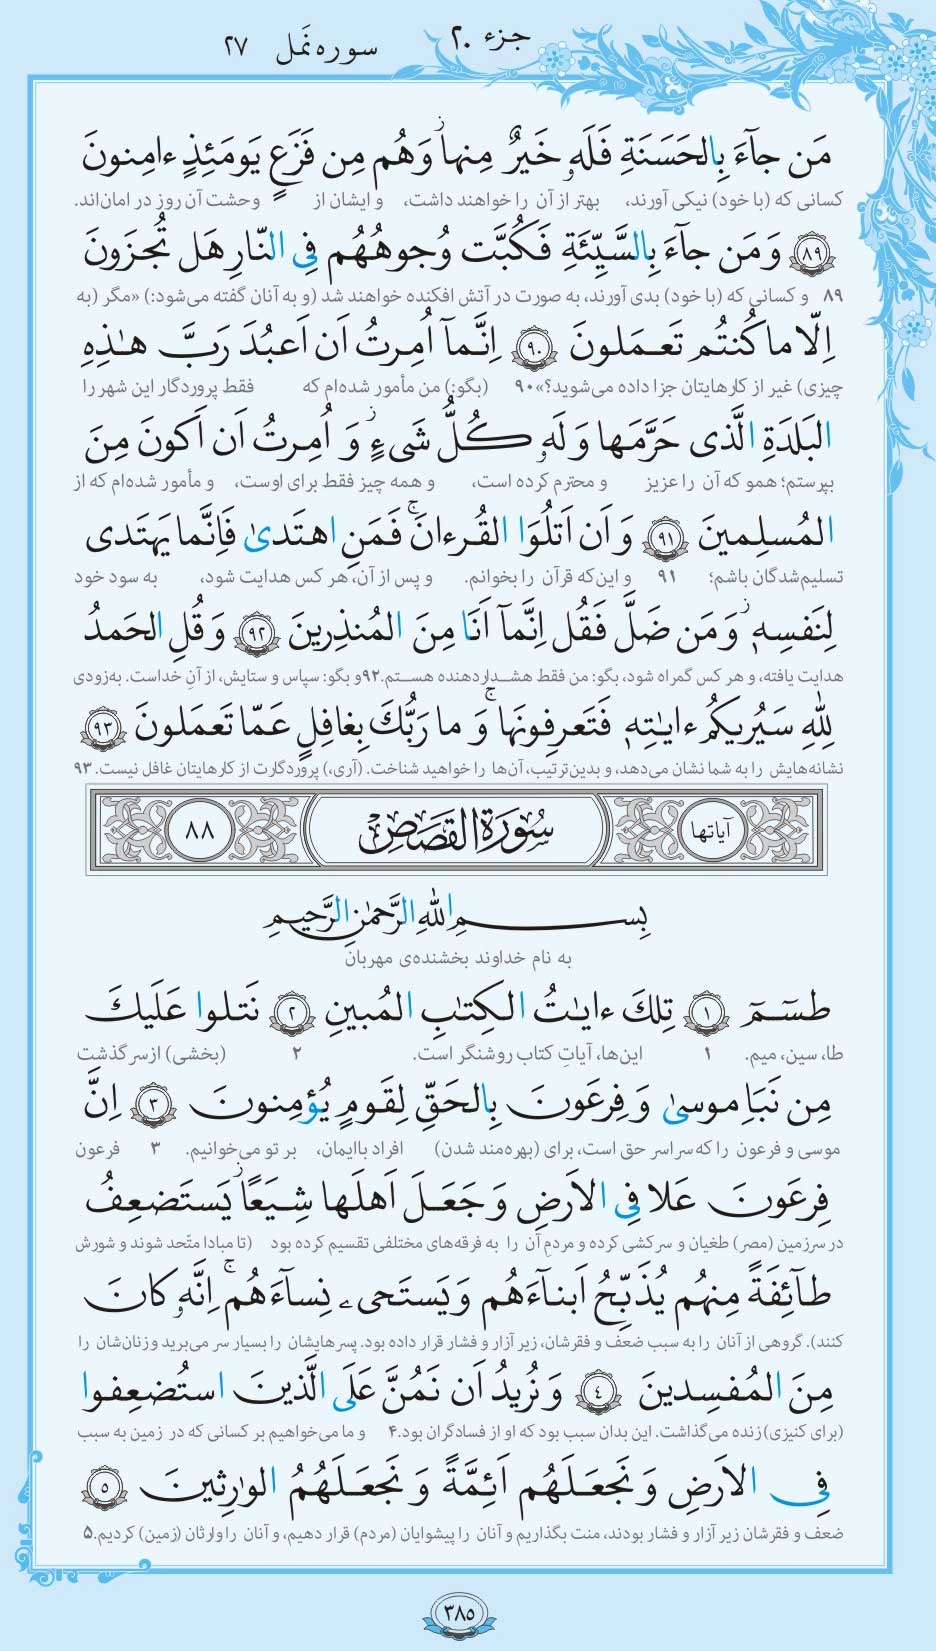 جزء ۲۰
سوره نَمل ۲۷
مَن جآءَ بِالحَسَنَةِ فَلَهٗ خَیرٌ مِنها ۖز وَهُم مِن فَزَعٍ یَومَئِذٍ ءامِنونَ
کسانی که (با خود) نیکی آورند، بهتر از آن را خواهند داشت، و ایشان از وحشت آن روز در امان‌اند.
﴿۸۹﴾ وَمَن جآءَ بِالسَّیِّئَةِ فَکُبَّت وُجوهُهُم فِی النّارِ هَل تُجزَونَ
۸۹ و کسانی که (با خود) بدی آورند، به صورت در آتش افکنده خواهند شد (و به آنان گفته می‌شود:) «مگر (به
اِلّا ما کُنتُم تَعمَلونَ ﴿۹۰﴾ اِنَّمآ اُمِرتُ اَن اَعبُدَ رَبَّ هٰذِهِ
چیزی) غیر از کارهایتان جزا داده می‌شوید؟» ۹۰ (بگو:) من مأمور شده‌ام که فقط پروردگار این شهر را
البَلدَةِ الَّذی حَرَّمَها وَلَهٗ کُلُّ شَیءٍ ز وَ اُمِرتُ اَن اَکونَ مِنَ
بپرستم؛ همو که آن را عزیز و محترم کرده است، و همه چیز فقط برای اوست، و مأمور شده‌ام که از
المُسلِمینَ ﴿۹۱﴾ وَ اَن اَتلُوَا القُرءانَ ۚ فَمَنِ اهتَدیٰ فَاِنَّما یَهتَدی
تسلیم‌شدگان باشم؛ ۹۱ و این‌که قرآن را بخوانم. و پس از آن، هر کس هدایت شود، به سود خود
لِنَفسِهٖ ز وَ مَن ضَلَّ فَقُل اِنَّمآ اَنَا مِنَ المُنذِرینَ ﴿۹۲﴾ وَ قُلِ الحَمدُ
هدایت یافته، و هر کس گمراه شود، بگو: من فقط هشداردهنده هستم. ۹۲ و بگو: سپاس و ستایش، از آنِ خداست. به‌زودی
لِلّٰهِ سَیُریکُم ءایـٰتِهٖ فَتَعرِفونَها ۚ وَ ما رَبُّكَ بِغافِلٍ عَمّا تَعمَلونَ ﴿۹۳﴾
نشانه‌هایش را به شما نشان می‌دهد، و بدین‌ترتیب، آن‌ها را خواهید شناخت. (آری،) پروردگارت از کارهایتان غافل نیست. ۹۳
آیاتها سُورَةُ القَصَصِ ۸۸
بِسمِ اللّٰهِ الرَّحمٰنِ الرَّحیمِ
به نام خداوند بخشنده‌ی مهربان
طسٓمٓ ﴿۱﴾ تِلكَ ءایـٰتُ الکِتٰبِ المُبینِ ﴿۲﴾ نَتلوا عَلَیكَ
طا، سین، میم. ۱ این‌ها، آیاتِ کتاب روشنگر است. ۲ (بخشی) از سرگذشت
مِن نَبَاِ موسیٰ وَ فِرعَونَ بِالحَقِّ لِقَومٍ یُؤمِنونَ ﴿۳﴾ اِنَّ
موسی و فرعون را که سراسر حق است، برای (بهره‌مند شدن) افراد باایمان، بر تو می‌خوانیم. ۳ فرعون
فِرعَونَ عَلا فِی الاَرضِ وَ جَعَلَ اَهلَها شِیَعًا ز یَستَضعِفُ
در سرزمین (مصر) طغیان و سرکشی کرده و مردم آن را به فرقه‌های مختلفی تقسیم کرده بود (تا مبادا متّحد شوند و شورش
طآئِفَةً مِنهُم یُذَبِّحُ اَبنآءَهُم وَیَستَحیۦ نِسآءَهُم ۚ اِنَّهٗ کانَ
کنند). گروهی از آنان را به سبب ضعف و فقرشان، زیر آزار و فشار قرار داده بود. پسرهایشان را بسیار سر می‌برید و زنان‌شان را
مِنَ المُفسِدینَ ﴿٤﴾ وَ نُریدُ اَن نَمُنَّ عَلَی الَّذینَ استُضعِفوا
(برای کنیزی) زنده می‌گذاشت. این بدان سبب بود که او از فسادگران بود. ۴ و ما می‌خواهیم بر کسانی که در زمین به سبب
فِی الاَرضِ وَ نَجعَلَهُم اَئِمَّةً وَ نَجعَلَهُمُ الوارِثینَ ﴿۵﴾
ضعف و فقرشان زیر آزار و فشار بودند، منت بگذاریم و آنان را پیشوایان (مردم) قرار دهیم، و آنان را وارثان (زمین) کردیم. ۵
۳۸۵